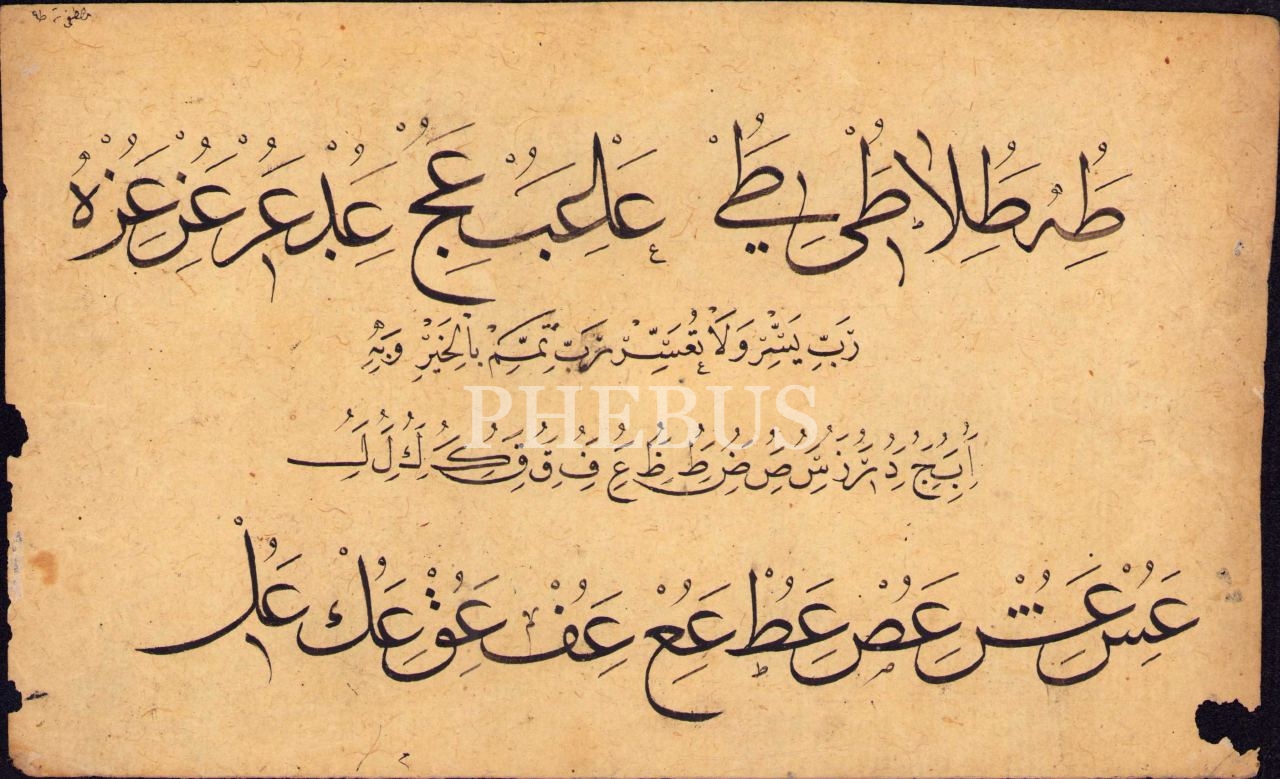 طه طلا طى طي عا عب عج عد عر عز
رَبِّ يَسِّرْ وَلَا تُعَسِّرْ رَبِّ تَمِّمْ بِالْخَيْرِ وَبِهِ
PHEBUS
ا ب ج د ر ز س ص ض ط ظ ع ف ق ق ك ك ل ل
عس عش عص عط عع عف عق عك عل